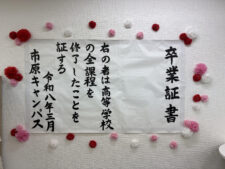 卒業証書
右の者は高等学校
の全課程を
修了したことを
証する
令和八年三月
市原キャンパス